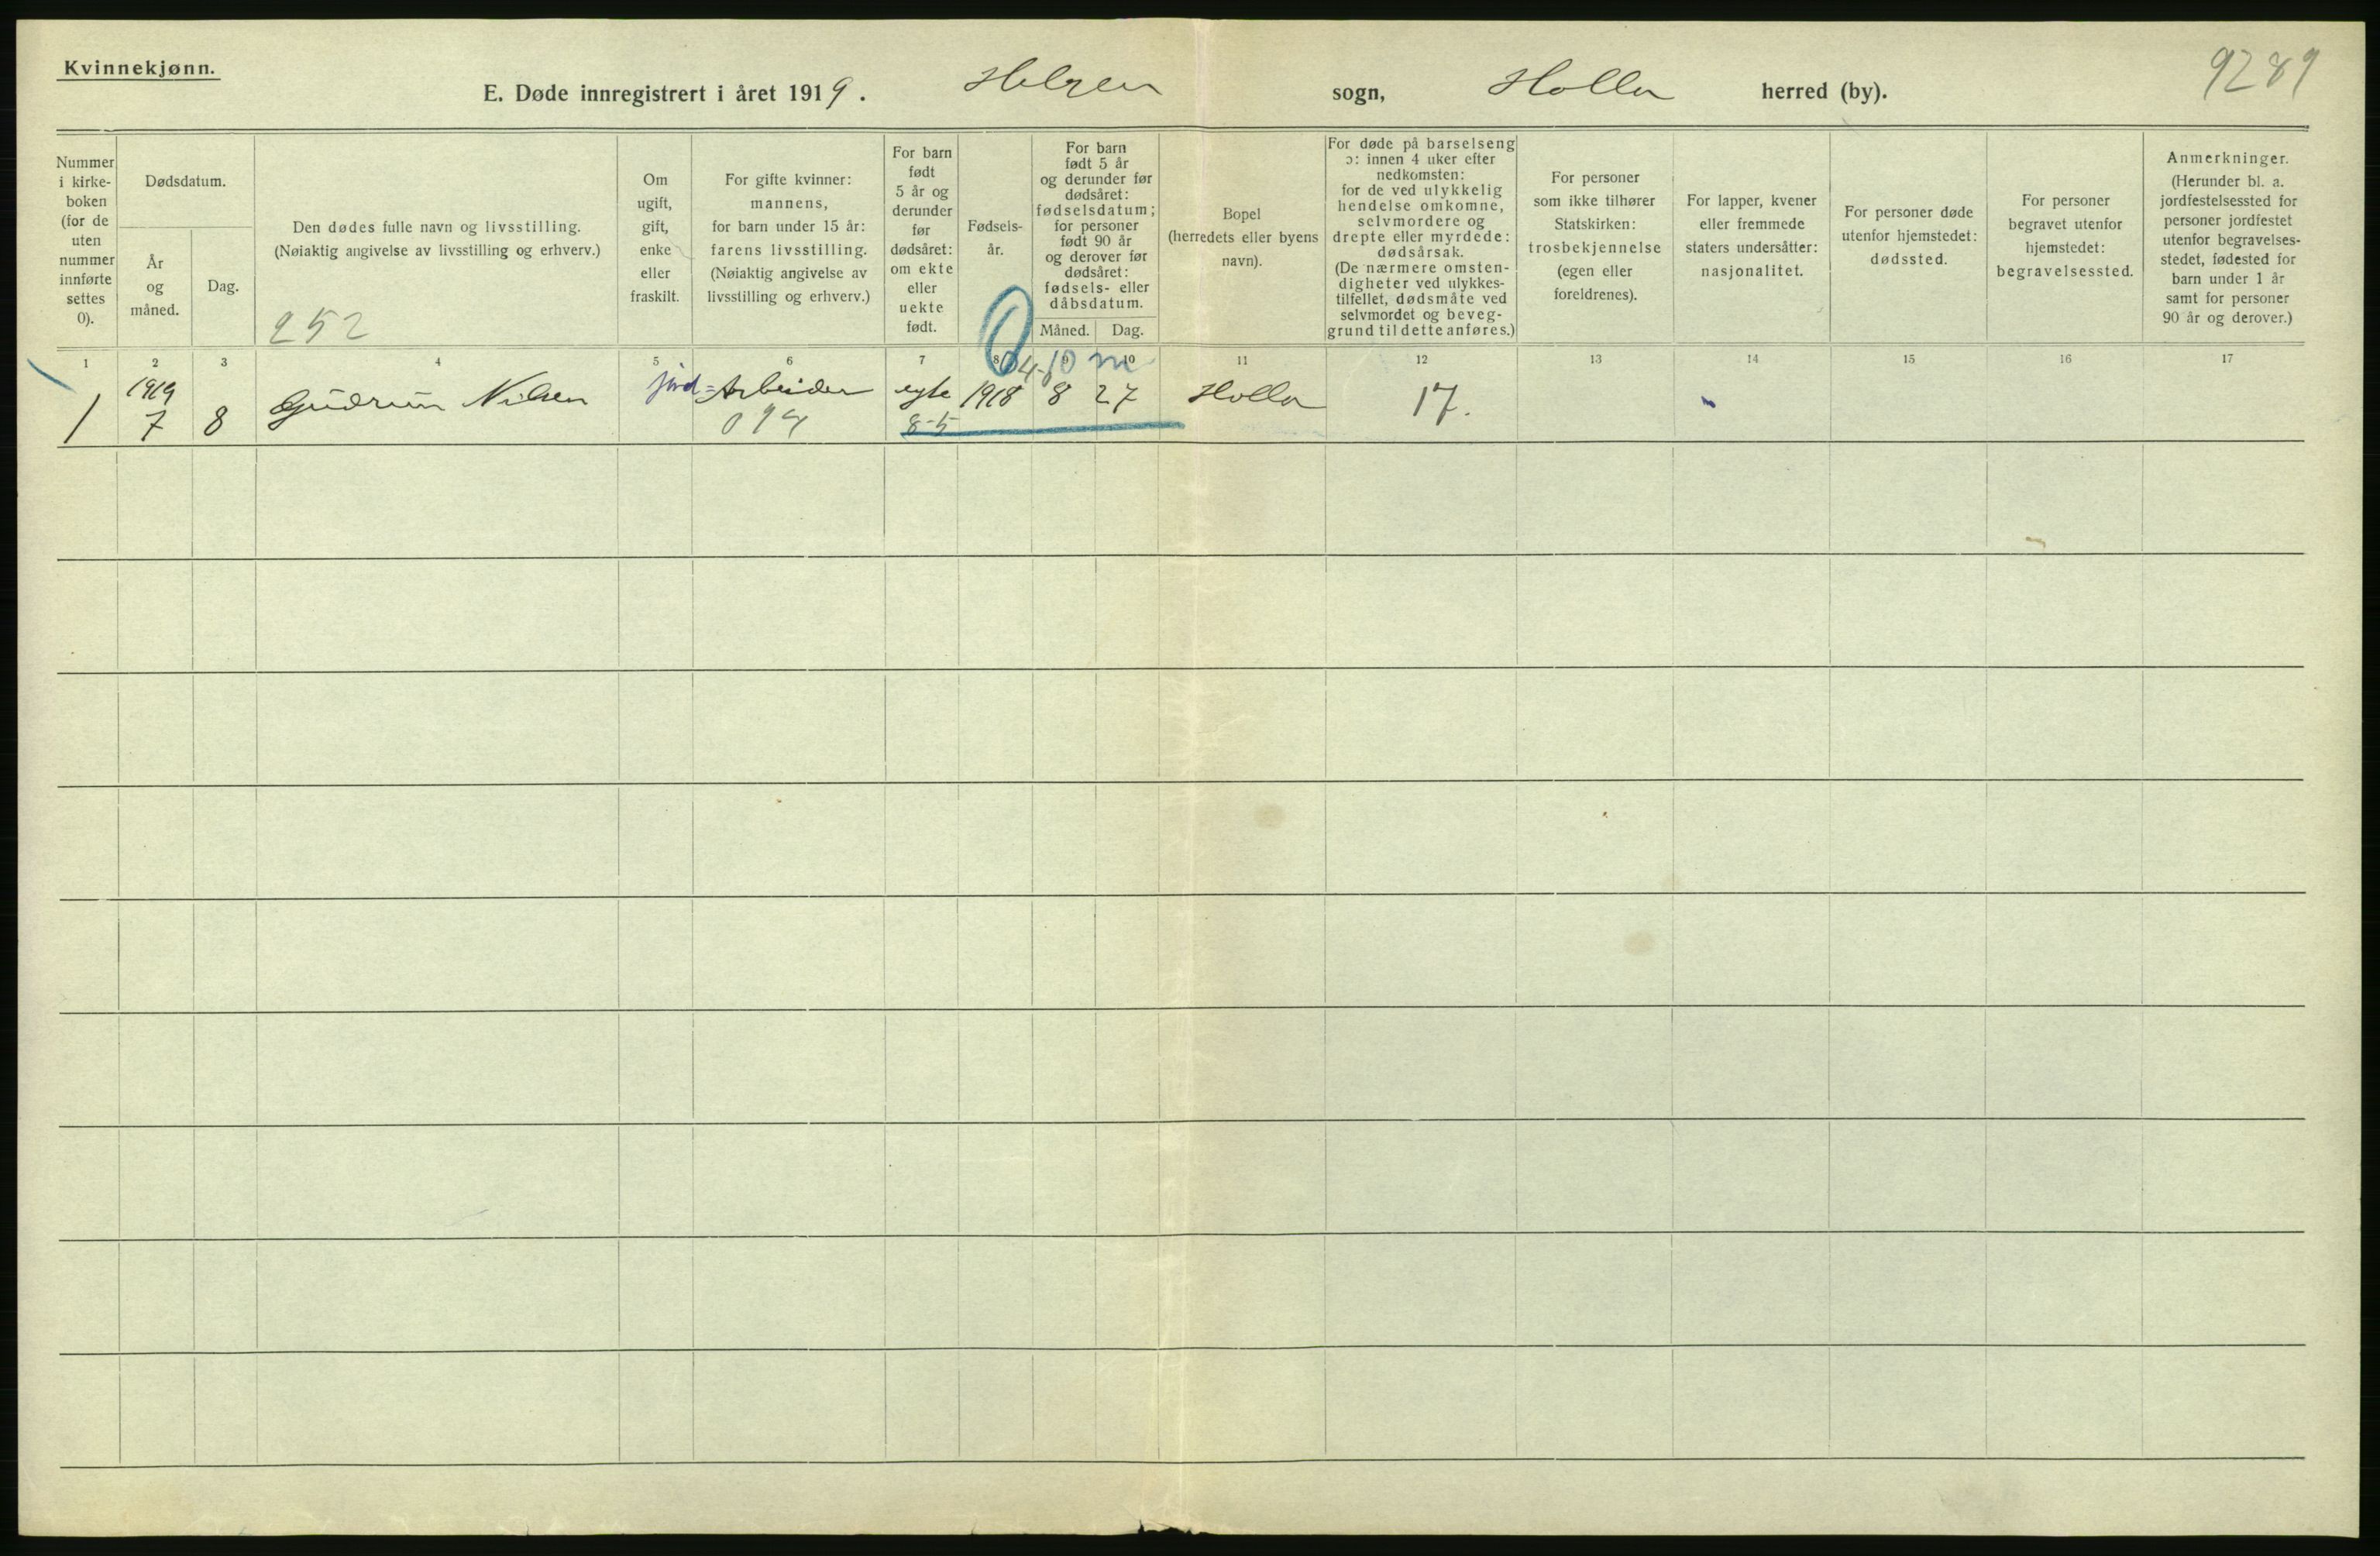 Kvinnekjønn.
E. Døde innregistrert i året 1919. Helgen sogn, Holla herred (by).
9289
Nummer
i kirke-
boken
(for de
uten
nummer
innførte
settes
0).
Dødsdatum.
År
og
måned.
Dag.
Den dødes fulle navn og livsstilling.
(Nøiaktig angivelse av livsstilling og erhverv.)
252
Om
ugift,
gift,
enke
eller
fraskilt.
For gifte kvinner:
mannens,
for barn under 15 år:
farens livsstilling.
(Nøiaktig angivelse av
livsstilling og erhverv.)
For barn
født
5 år og
derunder
før
dødsåret:
om ekte
eller
uekte
født.
Fødsels-
år.
For barn
født 5 år
og derunder før
dødsåret:
fødselsdatum;
for personer
født 90 år
og derover før
dødsåret:
fødsels- eller
dåbsdatum.
Måned. Dag.
Bopel
(herredets eller byens
navn).
For døde på barselseng
ɔ: innen 4 uker efter
nedkomsten:
for de ved ulykkelig
hendelse omkomne,
selvmordere og
drepte eller myrdede:
dødsårsak.
(De nærmere omsten-
digheter ved ulykkes-
tilfellet, dødsmåte ved
selvmordet og beveg-
grund til dette anføres.)
For personer
som ikke tilhører
Statskirken:
trosbekjennelse
(egen eller
foreldrenes).
For lapper, kvener
eller fremmede
staters undersåtter:
nasjonalitet.
For personer døde
utenfor hjemstedet:
dødssted.
For personer
begravet utenfor
hjemstedet:
begravelsessted.
Anmerkninger.
(Herunder bl. a.
jordfestelsessted for
personer jordfestet
utenfor begravelses-
stedet, fødested for
barn under 1 år
samt for personer
90 år og derover.)
1 2 3 4 5 6 7 8 9 10 11 12 13 14 15 16 17
10 m
1919
1 7 8 Gudrun Nilsen jord= Arbeider egte 1918 8 27 Holla 17.
8-5